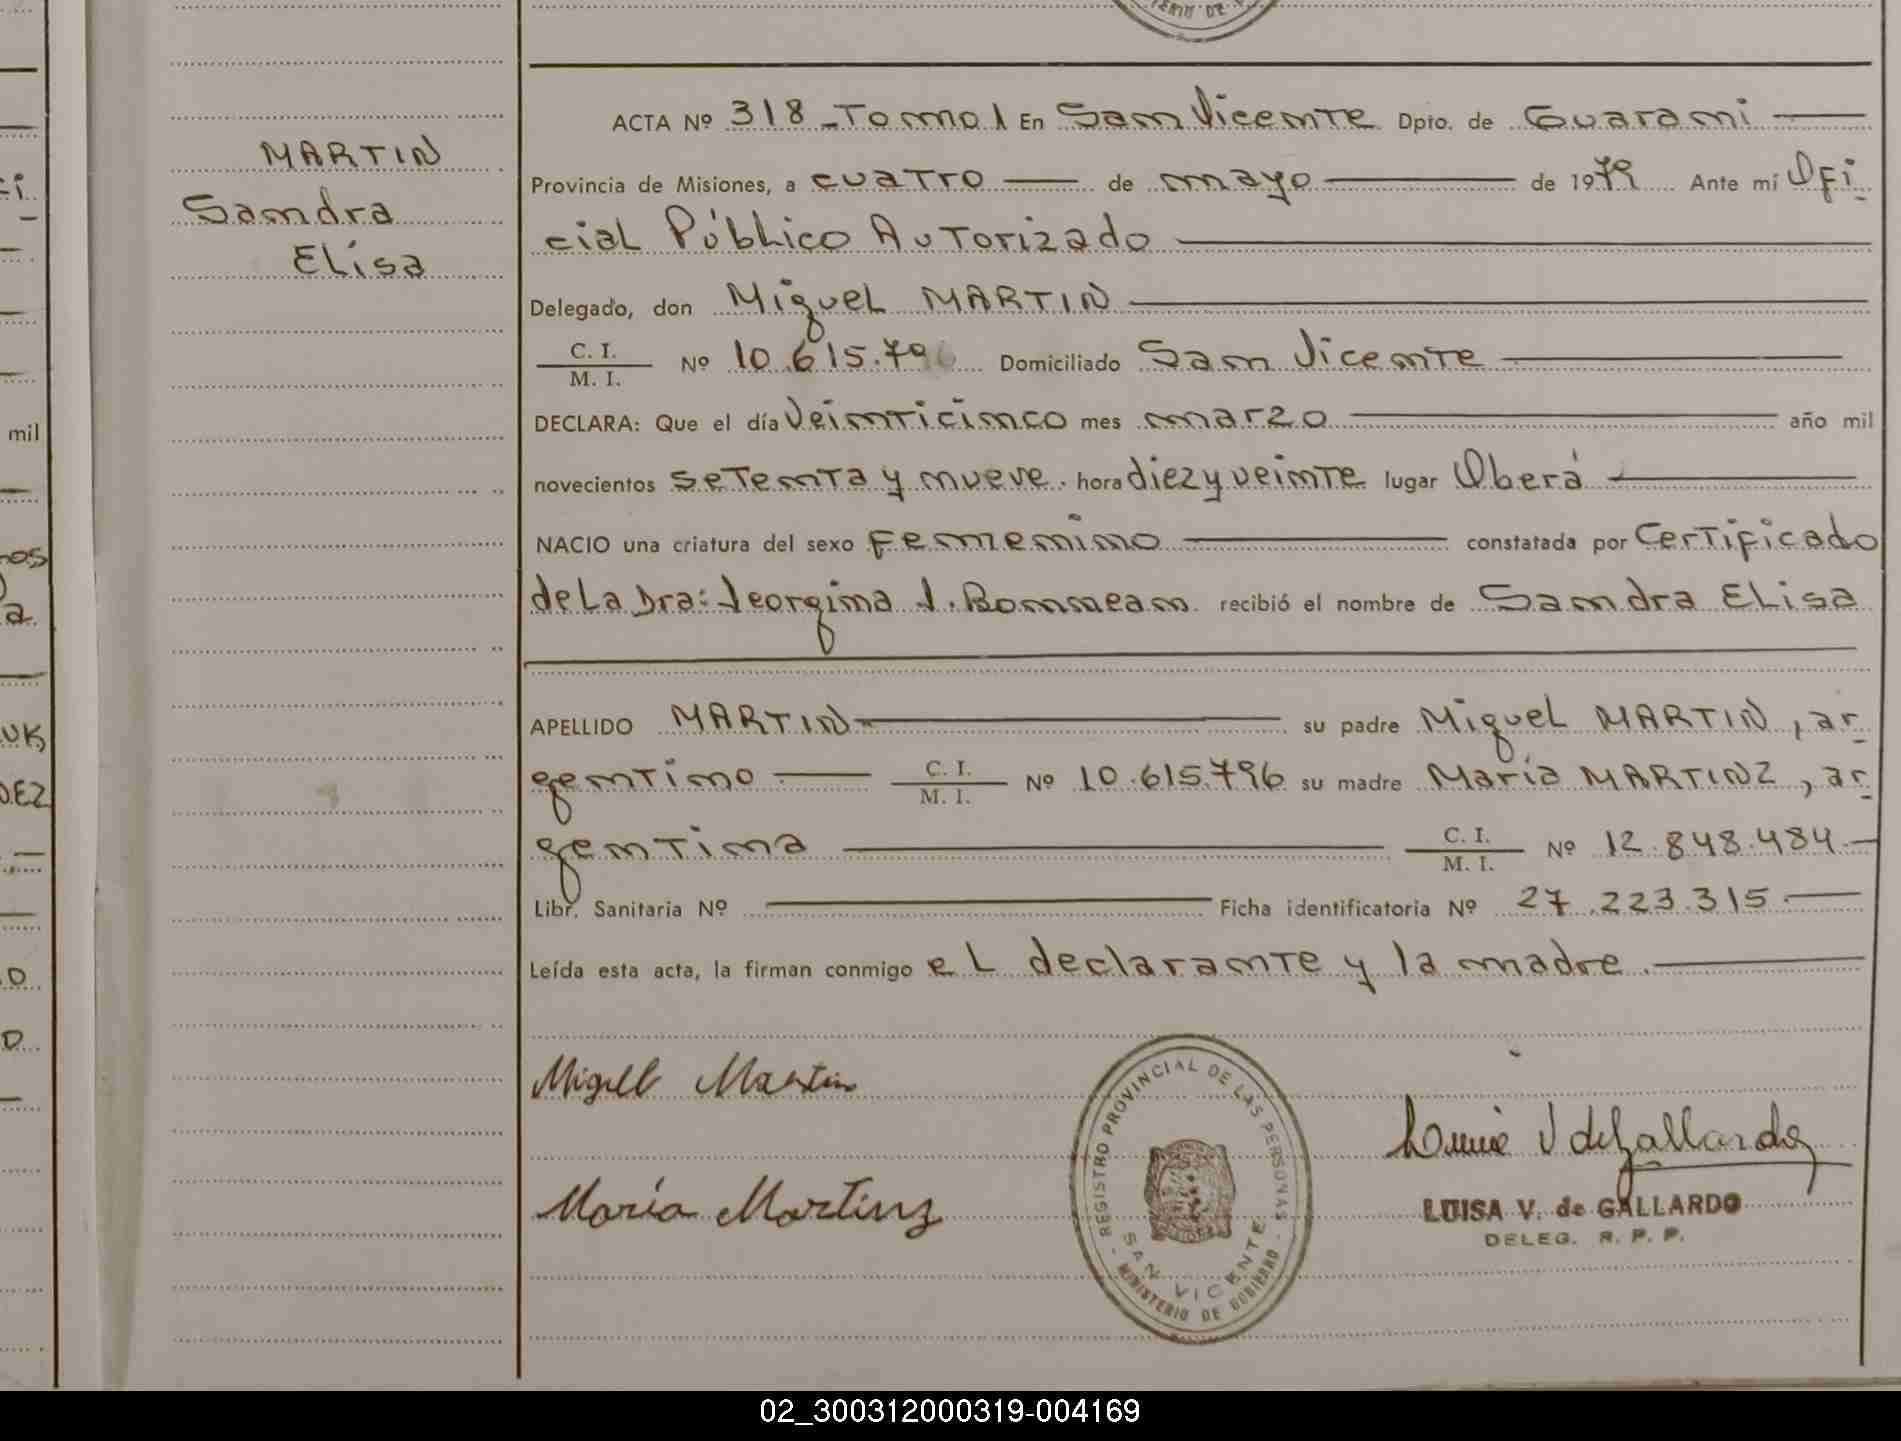 TERIO DE
MARTIN
Sandra
Elisa
ACTA Nº 318 - Tomo I En San Vicente Dpto. de Guarani
Provincia de Misiones, a cuatro de mayo de 1979 Ante mi Ofi
cial Público Autorizado
Delegado, don Miguel MARTIN
C. I.
M. I. Nº 10.615.796 Domiciliado San Vicente
DECLARA: Que el día Veinticinco mes marzo año mil
novecientos setenta y nueve. hora diez y veinte lugar Oberá
NACIO una criatura del sexo Femenino constatada por Certificado
de La Dra: Jeorgina J. Bonnean recibió el nombre de Sandra Elisa
APELLIDO MARTIN su padre Miguel MARTIN, ar
gentino C. I.
M. I. Nº 10.615.796 su madre María MARTINZ, ar
gentina C. I.
M. I. Nº 12.848.484.
Libr. Sanitaria Nº Ficha identificatoria Nº 27.223.315.
Leída esta acta, la firman conmigo el declarante y la madre.
Miguel Martin
María Martinz
REGISTRO PROVINCIAL DE LAS PERSONAS
SAN VICENTE
MINISTERIO DE GOBIERNO
V de Gallardo
LUISA V. de GALLARDO
DELEG. R. P. P.
mil
nos
a
UK
DEZ
O
D
02_300312000319-004169